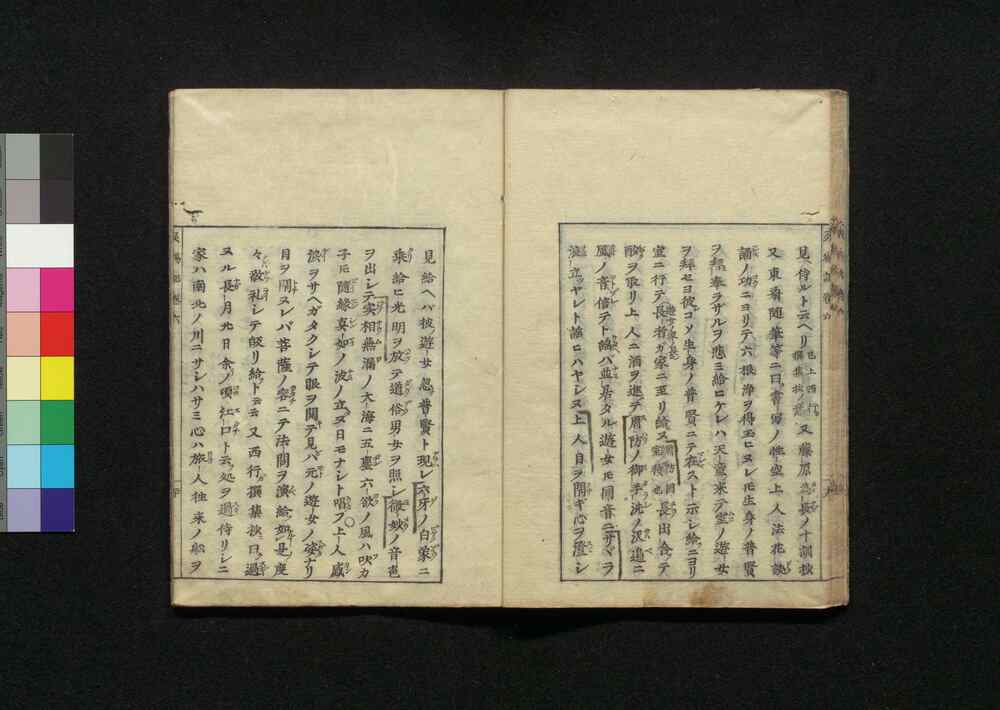 見ヘ侍ルト云ヘリ 已上西行撰集抄ノ意 又藤原ノ長ノ十訓抄
又東斎随筆等ニ曰書写ノ性空上人法花読
誦ノ功ニヨリテ六根浄ヲ得玉ヒヌレモ生身ノ普賢
ヲ拝奉ラサルヲ悲ミ給ヒケレハ天童来テ室ノ遊女
ヲ拝セヨ彼コソ生身ノ普賢ニテ在ストシメシ給ニヨリ
室ニ行テ長者ガ家ニ至リ給ヌ 長出合テ
酌ヲ取リ上人ニ酒ヲ進テ周防ノ御手洗ノ沢辺ニ
風ノ音信テト謡バ並居タル遊女モ同音ニサヾラ
波立ヤレト謡ヒハヤシヌ上人目ヲ閉ギ心ヲ澄シ
見給ヘハ彼遊女忽普賢ト現シ六牙ノ白象ニ
乗給ヒ光明ヲ放テ道俗男女ヲ照シ微妙ノ音声
ヲ出シテ実相無漏ノ大海ニ五塵六欲ノ風ハ吹カ
子ドモ随縁真如ノ波ノ立ヌ日モナシト唱フ上人感
涙ヲサヘガタクシテ眼ヲ開テ見バ元ノ遊女ノ姿ナリ
目ヲ閉ヌレバ菩薩ノ容ニテ法問ヲ演給如是度
々敬礼シテ皈リ給ト云云又西行撰集抄曰過
ヌル長月廿日余ノ頃江口ト云処ヲ過侍リシニ
家ハ南北ノ川ニサシハサミ心ハ旅人往来ノ船ヲ